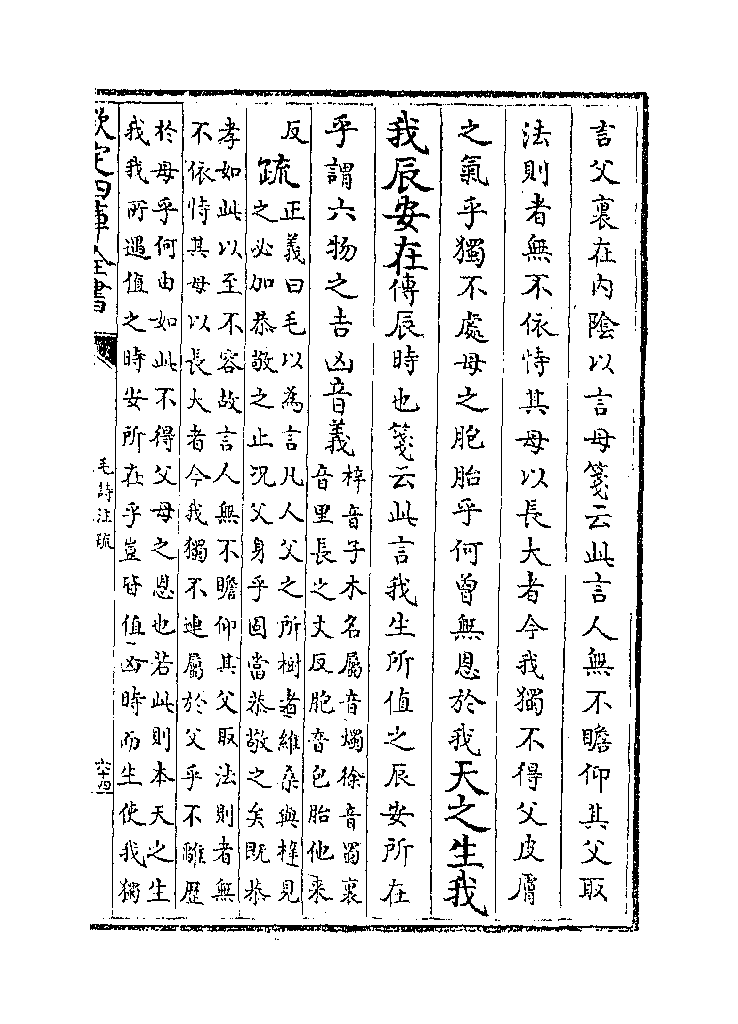 言父裏在内陰以言母箋云此言人無不瞻仰其父取
法則者無不依恃其母以長大者今我獨不得父皮膚
之氣乎獨不處母之胞胎乎何曾無恩於我天之生我
我辰安在傳辰時也箋云此言我生所值之辰安所在
乎謂六物之吉凶音義梓音子木名屬音燭徐音蜀裏
音里長之丈反胞音包胎他來
反疏正義曰毛以為言凡人父之所樹者維桑與梓見
之必加恭敬之止况父身乎固當恭敬之矣既恭
孝如此以至不容故言人無不瞻仰其父取法則者無
不依恃其母以長大者今我獨不連屬於父乎不離歴
於母乎何由如此不得父母之恩也若此則本天之生
我我所遇值之時安所在乎豈皆值凶時而生使我獨
欽定四庫全書
毛詩注疏
六十四